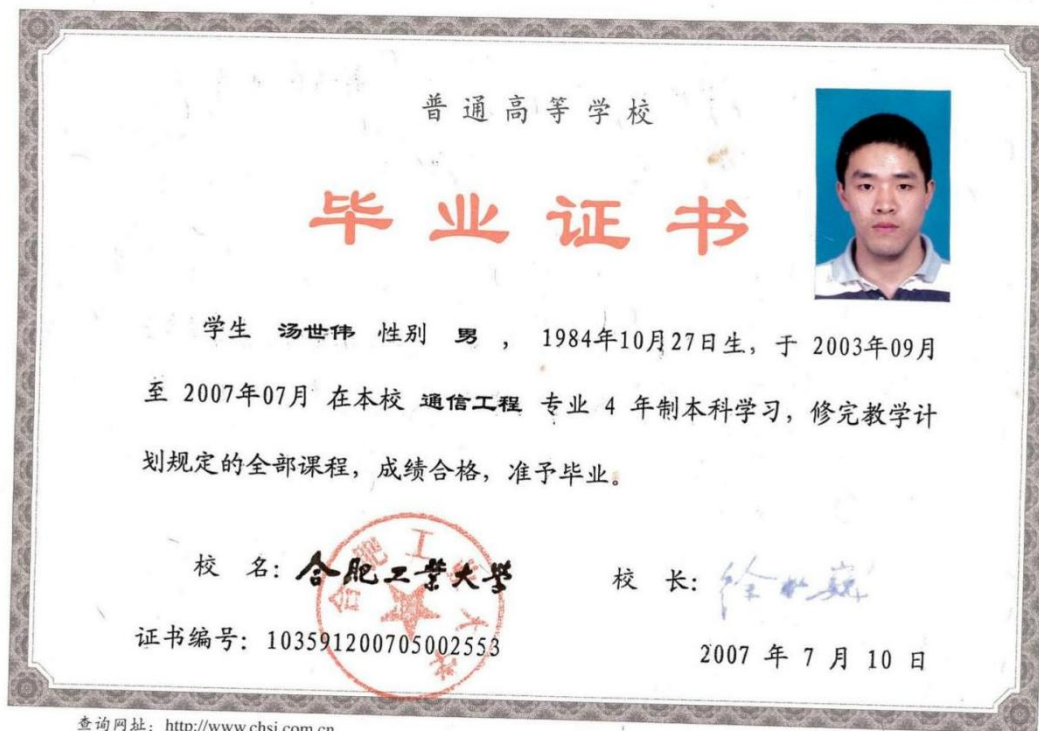 普通高等学校
毕业证书
学生 汤世伟 性别 男 ， 1984年10月27日生，于 2003年09月
至 2007年07月 在本校 通信工程 专业 4 年制本科学习，修完教学计
划规定的全部课程，成绩合格，准予毕业。
校 名：合肥工业大学
校 长：
合肥工业大学
证书编号：103591200705002553
2007 年 7 月 10 日
查询网址：http://www.chsi.com.cn